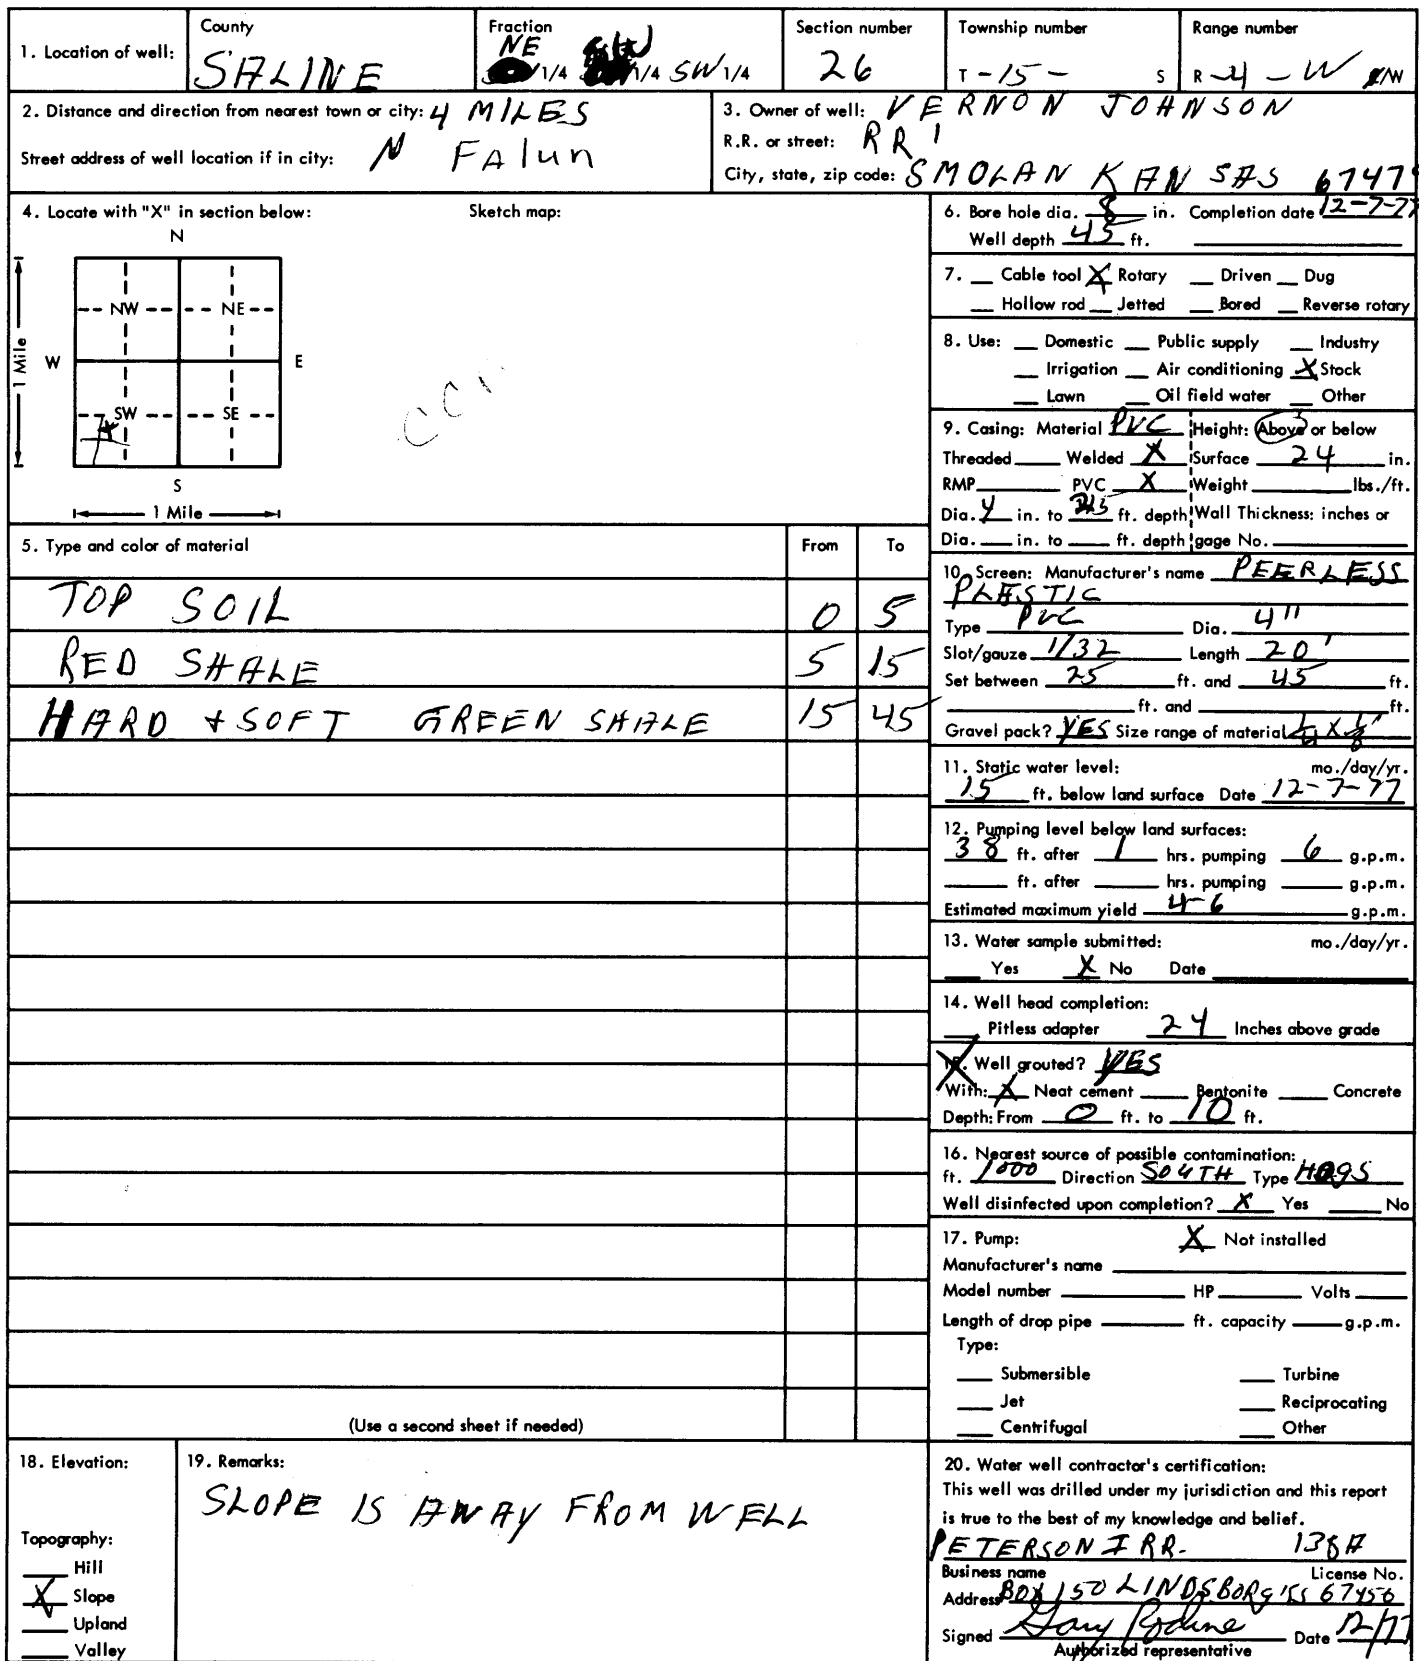 1. Location of well:
County
SALINE
Fraction
NE
1/4 1/4 SW 1/4
Section number
26
Township number
T -15- S
Range number
R -4-W E/W
2. Distance and direction from nearest town or city: 4 MILES
N Falun
Street address of well location if in city:
3. Owner of well: VERNON JOHNSON
R.R. or street: RR 1
City, state, zip code: SMOLAN KANSAS 67479
4. Locate with "X" in section below:
Sketch map:
N
NW NE
W E
SW SE
S
1 Mile
1 Mile
5. Type and color of material From To
TOP SOIL 0 5
RED SHALE 5 15
HARD + SOFT GREEN SHALE 15 45
(Use a second sheet if needed)
6. Bore hole dia. 8 in. Completion date 12-7-77
Well depth 45 ft.
7. Cable tool X Rotary Driven Dug
Hollow rod Jetted Bored Reverse rotary
8. Use: Domestic Public supply Industry
Irrigation Air conditioning X Stock
Lawn Oil field water Other
9. Casing: Material PVC Height: Above or below
Threaded Welded X Surface 24 in.
RMP PVC X Weight lbs./ft.
Dia. 4 in. to ft. depth Wall Thickness: inches or
Dia. in. to ft. depth gage No.
10. Screen: Manufacturer's name PEERLESS
PLASTIC
Type PVC Dia. 4"
Slot/gauze 1/32 Length 20'
Set between 25 ft. and 45 ft.
ft. and ft.
Gravel pack? YES Size range of material 1/4 X 1/8"
11. Static water level: mo./day/yr.
15 ft. below land surface Date 12-7-77
12. Pumping level below land surfaces:
38 ft. after 1 hrs. pumping 6 g.p.m.
ft. after hrs. pumping g.p.m.
Estimated maximum yield 4-6 g.p.m.
13. Water sample submitted: mo./day/yr.
Yes X No Date
14. Well head completion:
Pitless adapter 24 Inches above grade
15. Well grouted? YES
With: X Neat cement Bentonite Concrete
Depth: From 0 ft. to 10 ft.
16. Nearest source of possible contamination:
ft. 1000 Direction SOUTH Type HOGS
Well disinfected upon completion? X Yes No
17. Pump: X Not installed
Manufacturer's name
Model number HP Volts
Length of drop pipe ft. capacity g.p.m.
Type:
Submersible Turbine
Jet Reciprocating
Centrifugal Other
18. Elevation:
Topography:
Hill
X Slope
Upland
Valley
19. Remarks:
SLOPE IS AWAY FROM WELL
20. Water well contractor's certification:
This well was drilled under my jurisdiction and this report
is true to the best of my knowledge and belief.
PETERSON IRR. 138A
Business name License No.
Address BOX 150 LINDSBORG KS 67456
Signed Gary Rodine Date 12/77
Authorized representative